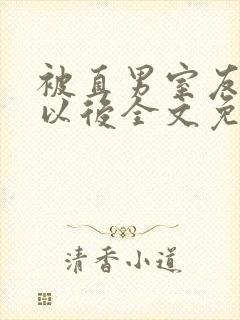 被直男室友
以後全文免
清香小道